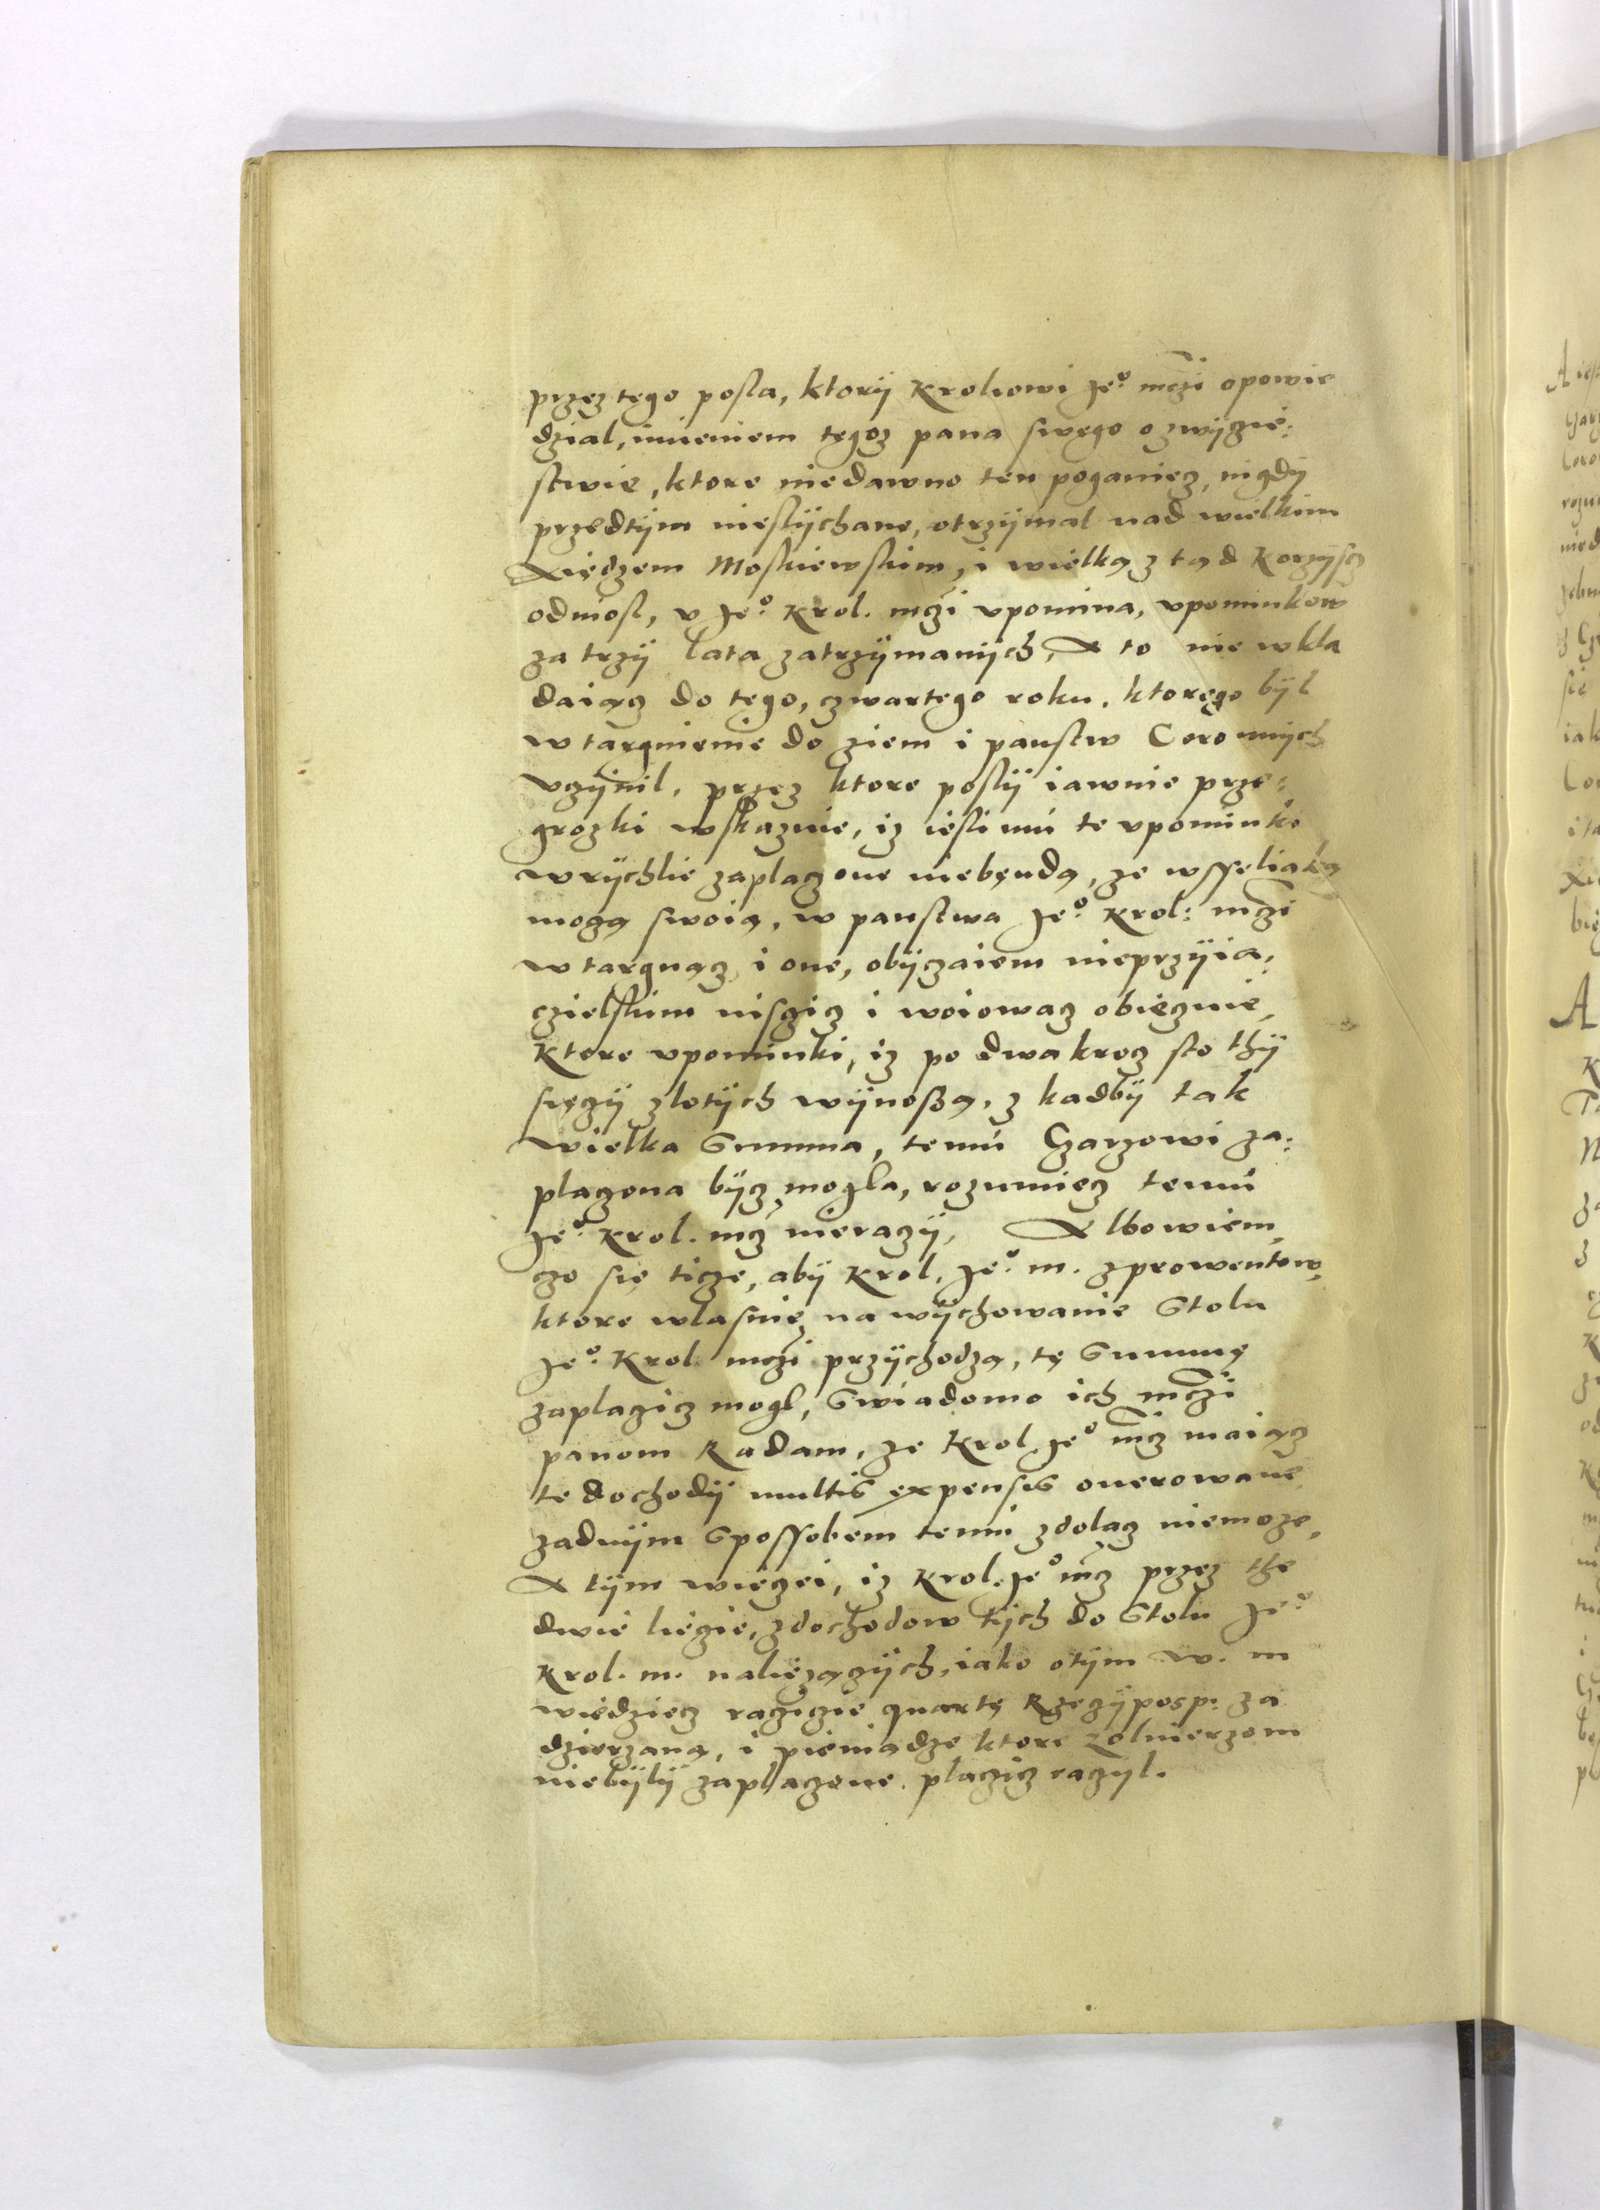 przez tego posła, ktorÿ Krolowi Jeº mczi opowie
dzial, imieniem tegoz pana swego o zwÿcie:
stwie, ktore niedawno ten poganiecz, nigdÿ
przedtÿm niesłÿchane, otrzÿmal nad wielkim
Xiędzem Moskiewskim, i wielką z tąd korzÿscz
odniosł, v Jeº Krol. mczi vpomina, vpominkow
za trzÿ lata zatrzÿmanÿch, A to nie wkła
daiącz do tego, czwartego roku, ktorego bÿl
wtargnienie do ziem i panstw Coronnÿch
vczÿnil, przez ktore poslÿ iawnie prze:
grozki wskazuie, iz iesli mú te vpominki
wrÿchlie zaplaczone niebęndą, ze wsseliaką
moczą swoią, w panstwa Jeº Krol: mczi
wtargnącz i one, obÿczaiem nieprzÿia:
czielskim nisczicz i woiowacz obieczuie,
Ktore vpominki, iz po dwa krocz sto thÿ
sięczÿ zlotÿch wÿnoszą, z kadbÿ tak
wielka Summa, temú Czarzowi za:
placzona bÿcz mogła, rozumiecz temú
Jeº Krol. mcz nieraczÿ, Albowiem,
czo się ticze, abÿ Krol. Jeº m. z prowentow,
ktore własnie na wÿchowanie Stolu
Jeº Krol mczi przÿchodzą, tę Summę
zaplaczicz mogl, Swiadomo ich mczi
panom Radam, ze Krol. Jeº mcz maiącz
te dochodÿ multis expensis onerowane
zadnÿm Spossobem temú zdolacz niemoze,
A tÿm więczei, iz Krol. Jeº mcz przez the
dwie liecie, z dochodow tÿch do Stolu Jeº
Krol. m. naliezączÿch, iako otÿm w. m
wiedziecz raczicie quartę Rzeczÿposp: za
dzierzaną, i pieniądze ktore zolnierzom
niebÿlÿ zaplaczone placzicz raczyl.